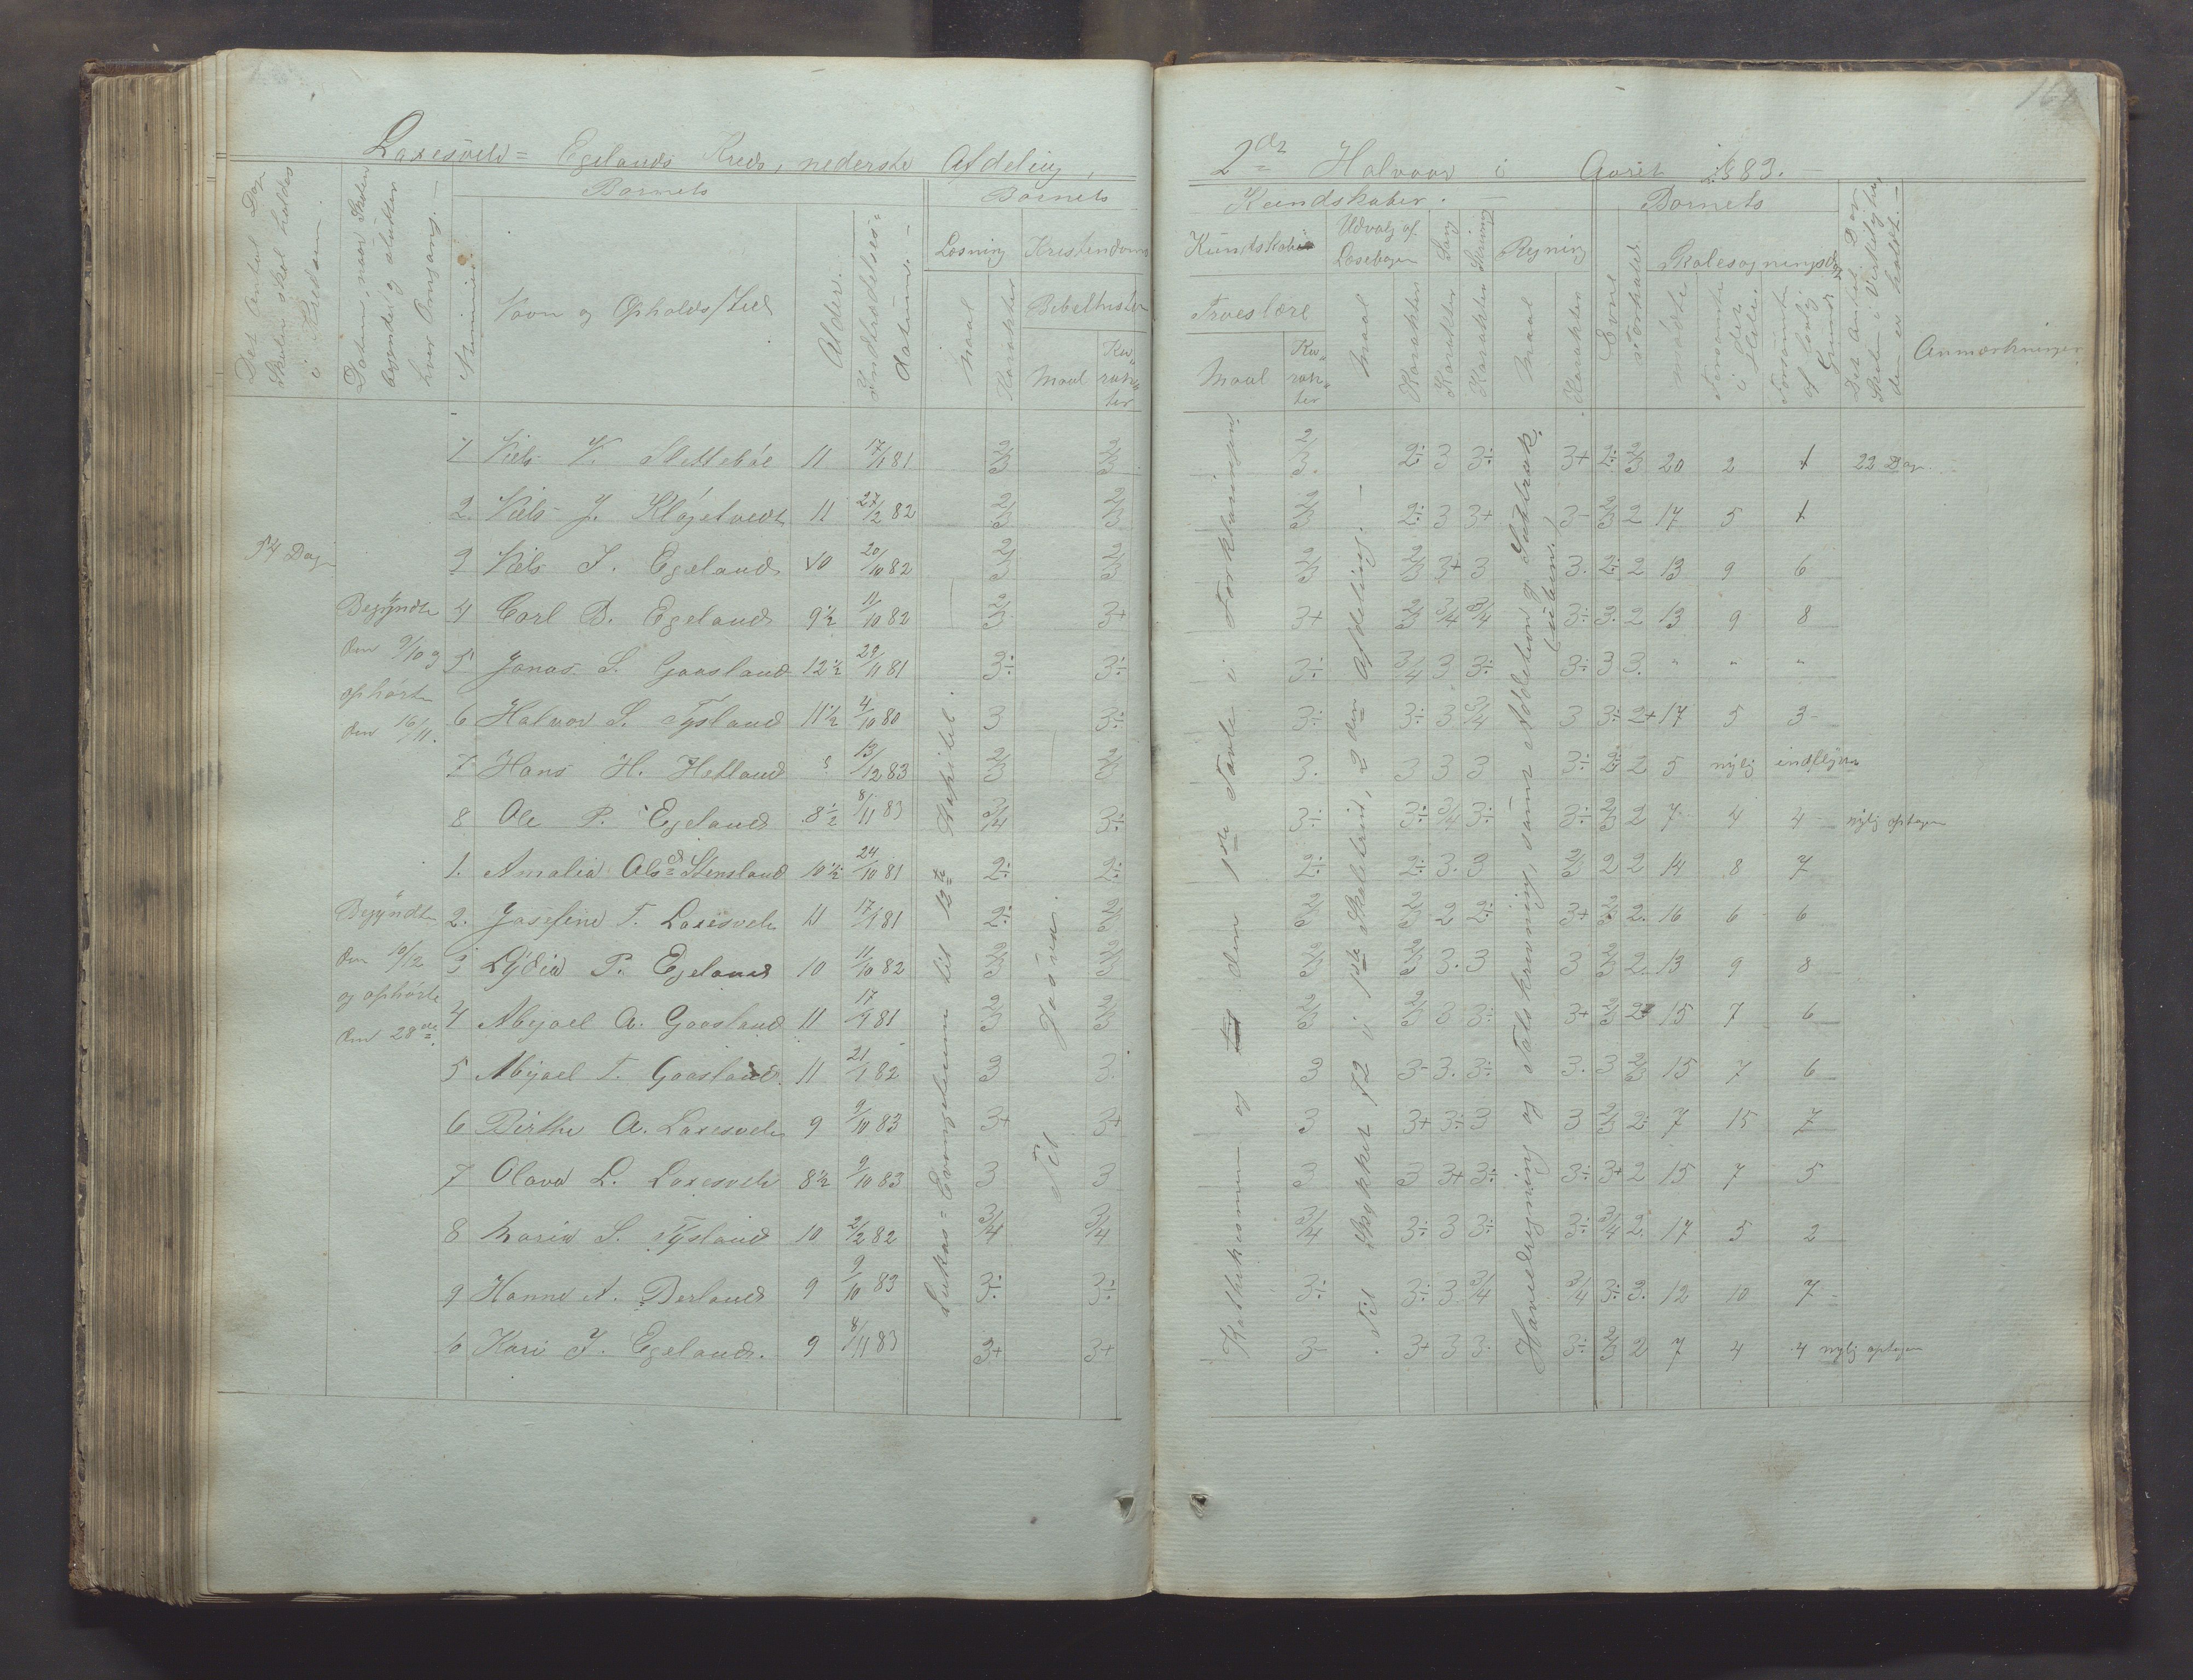 Laxesvele= Egelands Kreds, nederste Afdeling,
2den Halvaar i Aaret 1883.
Det Antal Dage Skolen skal holdes i Kredsen.
Datum, naar Skolen begynder og slutter hver Omgang.
Nummer.
Barnets
Navn og Opholds/sted
Alder.
Indtrædelses= datum.
Barnets
Læsning
Kristendoms
Maal
Karakter
Bibelhistorie
Maal
Karakter
Kundskaber.
Kundskab
Troeslære
Maal
Karakter
Udvalg af Læsebogen
Maal
Karakter
Sang
Karakter
Skrivning
Karakter
Regning
Maal
Karakter
Barnets
Evne
Forhold.
Skolesøgningsdage
mødte
Forsømte i det Hele.
Forsømte af lovlig Grund
Det Antal Dage Skolen i Virkeligheden er holdt.
Anmærkninger
1 Niels V. 11 17/1 81 2/3 2/3 2/3. 2÷ 3 3÷ 3+ 2÷ 2/3 20 2 1 22 Dage
2. Niels J. Kløgetvedt 11 27/2 82 2/3 2/3 2/3 2÷ 3 3+ 3- 2/3 2 17 5 1
54 Dage
3 Niels J. Egeland 10 20/10 82 2/3 2/3 2/3 2/3 3+ 3 3. 2÷ 2 13 9 6
Begyndte den 9/10 og ophørte den 16/11.
4 Carl D. Egeland 9½ 11/10 82 2/3 3+ 3+ 2/3 3/4 3/4 3÷ 3. 2 13 9 8
5 Jonas S. Gaasland 12½ 29/11 81 3÷ 3÷ 3÷ 3/4 3 3÷ 3÷ 3 3. " " "
6 Halvor S. Tysland 11½ 4/10 80 3 3÷ 3÷ 3÷ 3 3/4 3 3÷ 2+ 17 5 3
7 Hans H. Hetland 13/12 83 2/3 2/3 3. 3 3 3 3÷ 2÷ 2 5 nylig indflyttet
8 Ole P. Egeland 8½ 8/11 83 3/4 3÷ 3÷ 3÷ 3/4 3÷ 3÷ 2/3 2 7 4 4 nylig optagen
1. Amalia Olsd Stensland 10½ 24/10 81 2÷ 2÷ 2÷ 2÷ 3. 3 2/3 2 2 14 8 7
Begyndte den 10/12 og ophørte den 28de.
2. Josefine T. Laxesvele 11 17/1 81 2÷ 2/3 2/3 2/3 2 2÷ 3+ 2/3 2. 16 6 6
3 Lydia P. Egeland 10 11/10 82 2/3 2/3 2/3 2/3 3. 3 3 2/3 2. 13 9 8
4 Abyael A. Gaasland 11 17/1 81 2/3 2/3 2/3 2/3 3 3÷ 3+ 2/3 2 15 7 6
5 Abyael T. Gaasland. 11 21/1 82 3 3. 3 3- 3. 3÷ 3. 3 2/3 15 7 6
6 Birthe A. Laxesvele 9 9/10 83 3+ 3+ 3 3+ 3÷ 3 3 2/3 2 7 15 7
7 Olava L. Laxesvele 8½ 9/10 83 3 3 3 3 3+ 3÷ 3÷ 3+ 2 15 7 5
8 Maria S. Tysland 10 2/2 82 3/4 3/4 3/4 3÷ 3 3÷ 3÷ 3/4 2. 17 5 2
9 Hanne A. Berland 9 9/10 83 3÷ 3÷ 3÷ 3÷ 3 3/4 3/4 3÷ 3. 12 10 7
10 Kari J. Egeland. 9 8/11 83 3+ 3+ 3- 3+ 3 3. 3÷ 2/3 2 7 4 4 nylig optagen
Lukas= Evangelium til 12te Kapitel.
Til Josva.
Kathekismen og den 1ste Part i Forklaringen
Til Stykket 12 i 1ste Skoletrin, 2den Afdeling.
Hovedregning og Talskrivning, samt Addition og Subtrak(tionen.)